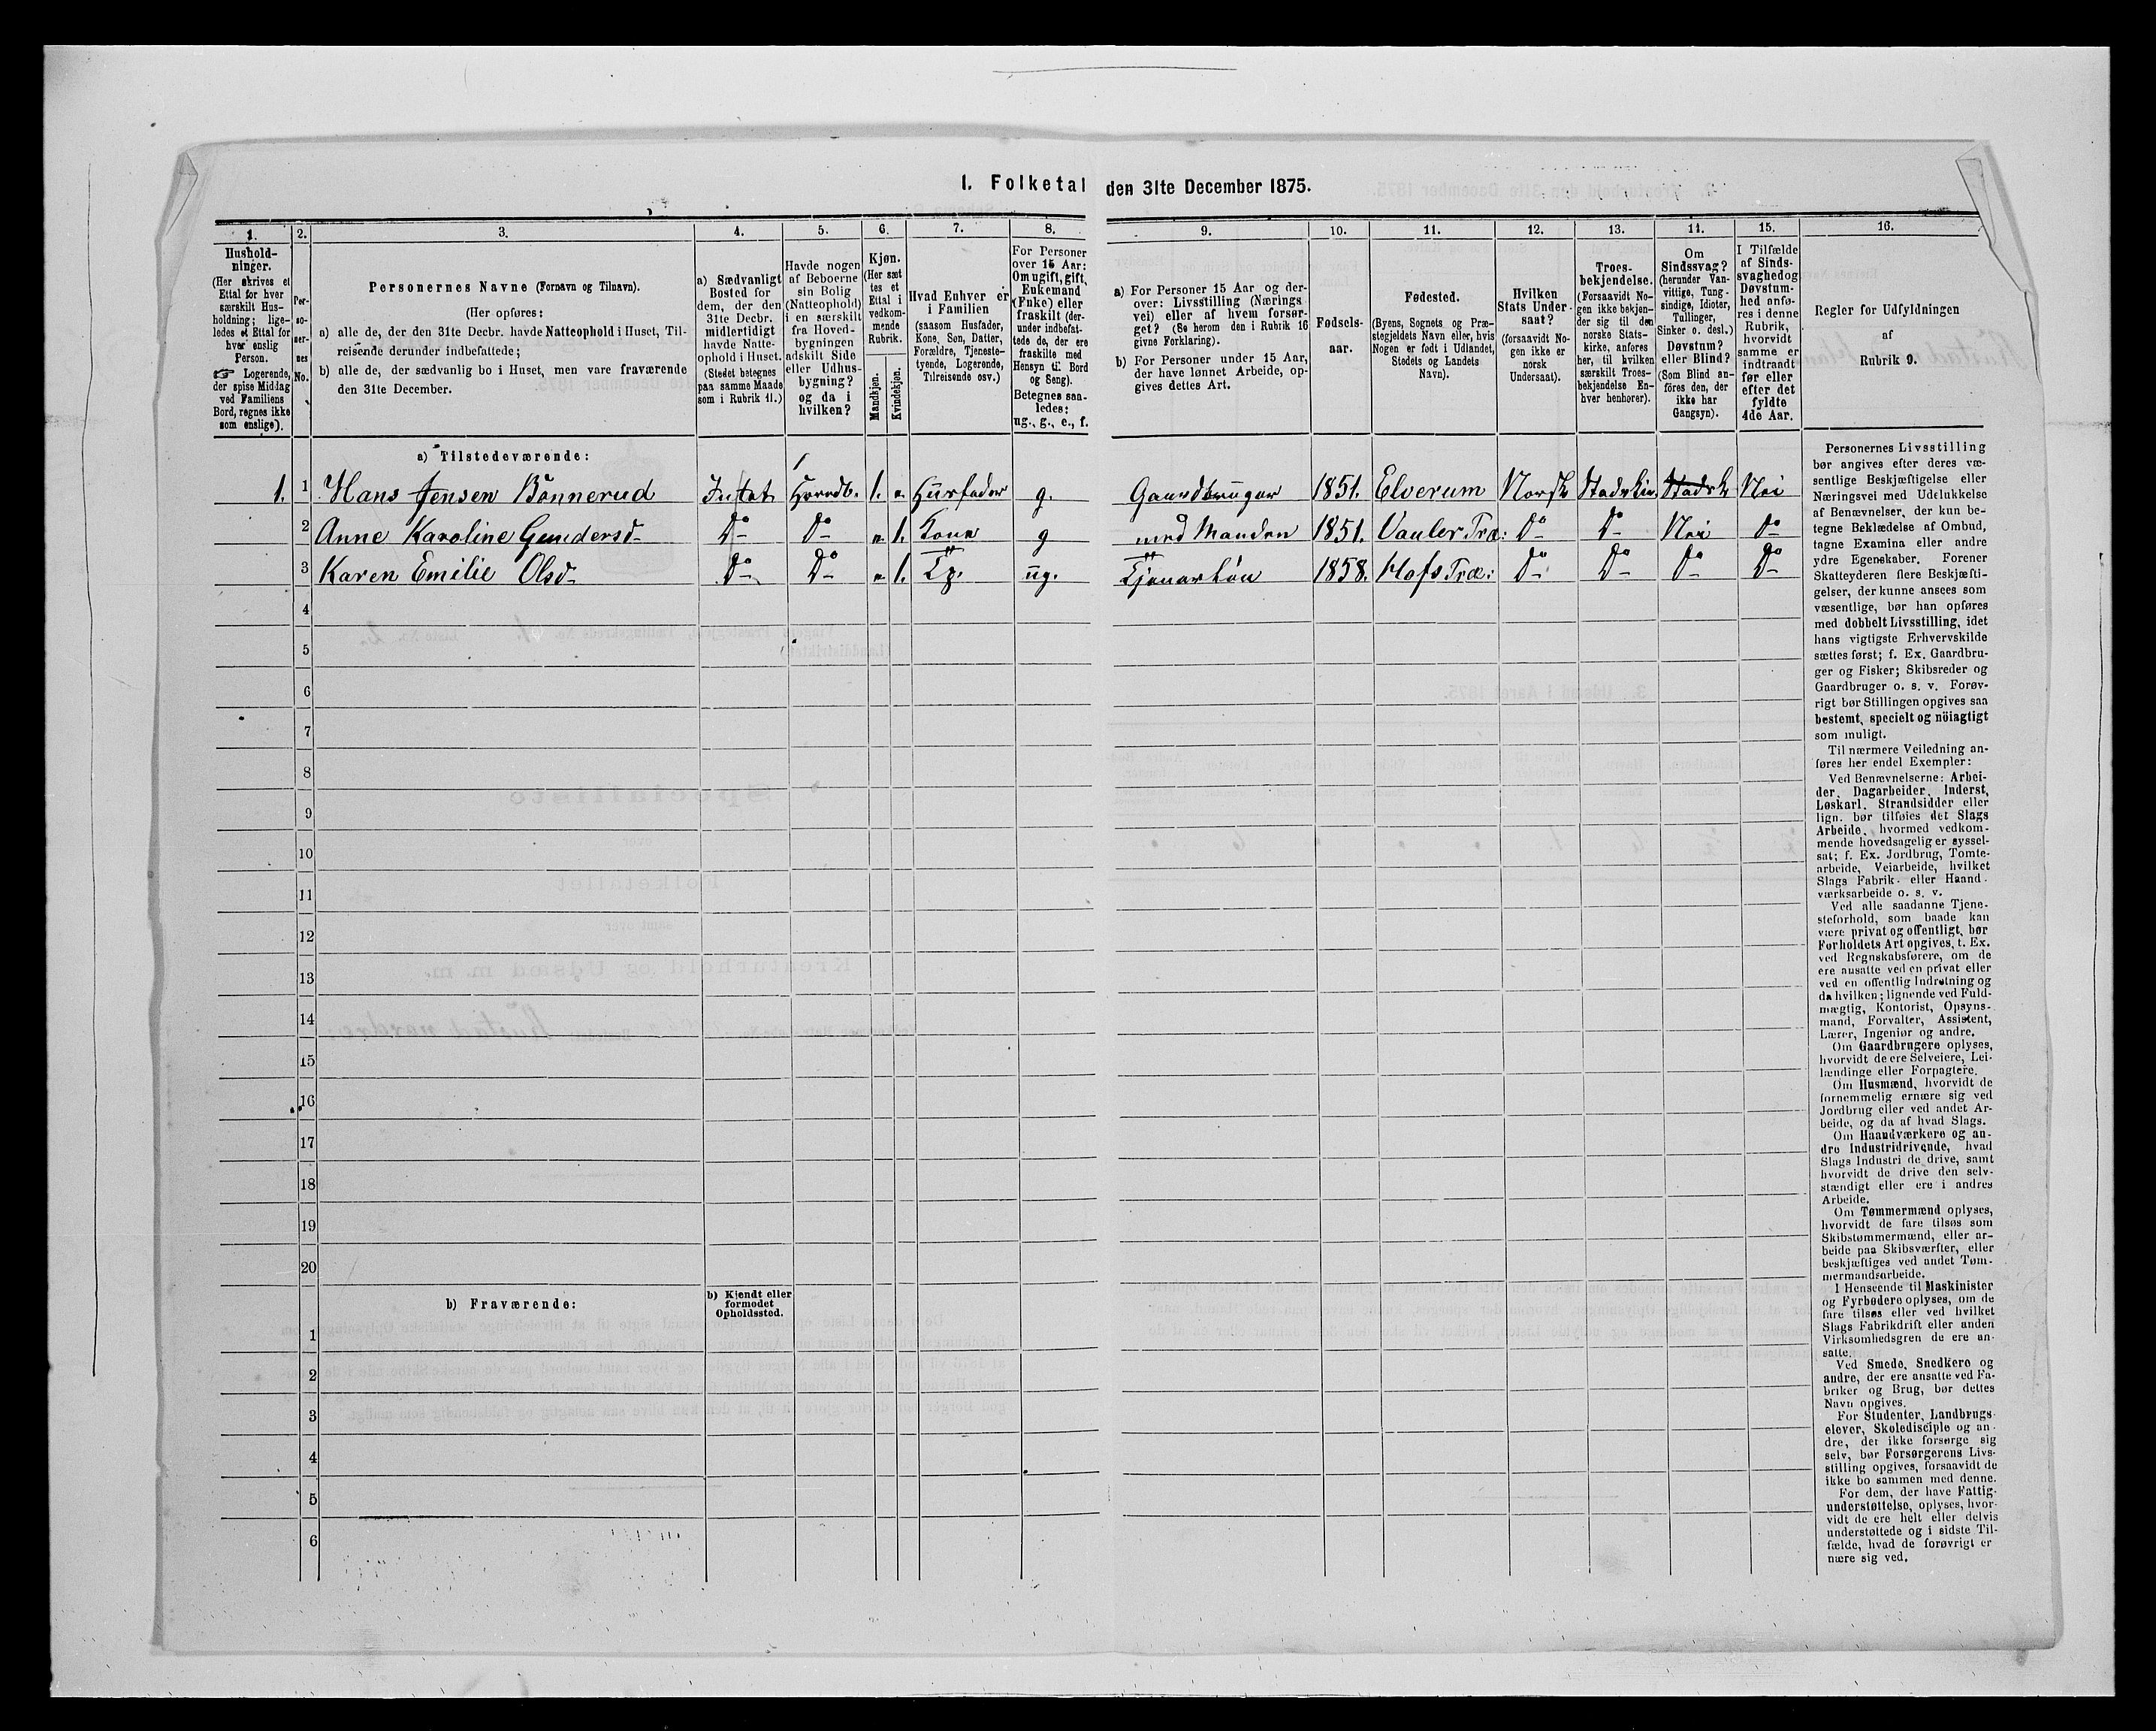 1. Folketal den 31te December 1875.
1. 2. 3. 4. 5. 6. 7. 8. 9. 10. 11. 12. 13. 14. 15. 16.
Hushold-
ninger.
(Her skrives et
Ettal for hver
særskilt Hus-
holdning; lige-
ledes et Ettal for
hver enslig
Person.
☞ Logerende,
der spise Middag
ved Familiens
Bord, regnes ikke
som enslige).
Per-
so-
ner-
nes
No.
Personernes Navne (Fornavn og Tilnavn).
(Her opføres:
a) alle de, der den 31te Decbr. havde Natteophold i Huset, Til-
reisende derunder indbefattede;
b) alle de, der sædvanlig bo i Huset, men vare fraværende
den 31te December.
a) Sædvanligt
Bosted for
dem, der den
31te Decbr.
midlertidigt
havde Natte-
ophold i Huset.
(Stedet betegnes
paa samme Maade
som i Rubrik 11.)
Havde nogen
af Beboerne
sin Bolig
(Natteophold)
i en særskilt
fra Hoved-
bygningen
adskilt Side
eller Udhus-
bygning?
og da i
hvilken?
Kjøn.
(Her sæt
tes et
Ettal i
vedkom-
mende
Rubrik.
Mandkjøn.
Kvindekjøn.
Hvad Enhver er
i Familien
(saasom Husfader,
Kone, Søn, Datter,
Forældre, Tjeneste-
tyende, Logerende,
Tilreisende osv.)
For Personer
over 15 Aar:
Om ugift, gift,
Enkemand
(Enke) eller
fraskilt (der-
under indbefat-
tede de, der ere
fraskilte med
Hensyn til Bord
og Seng).
Betegnes saa-
ledes:
ug., g., e., f.
a) For Personer 15 Aar og der-
over: Livsstilling (Nærings
vei) eller af hvem forsør-
get? (Se herom den i Rubrik 16
givne Forklaring).
b) For Personer under 15 Aar,
der have lønnet Arbeide, op-
gives dettes Art.
Fødsels-
aar.
Fødested.
(Byens, Sognets og Præ-
stegjeldets Navn eller, hvis
Nogen er født i Udlandet,
Stedets og Landets
Navn).
Hvilken
Stats Under-
saat?
(forsaavidt No-
gen ikke er
norsk
Undersaat).
Troes-
bekjendelse.
(Forsaavidt No-
gen ikke bekjen-
der sig til den
norske Stats-
kirke, anføres
her, til hvilken
særskilt Troes-
bekjendelse En-
hver henhører).
Om
Sindssvag?
(herunder Van-
vittige, Tung-
sindige, Idioter,
Tullinger,
Sinker o. desl.)
Døvstum?
eller Blind?
(Som Blind an-
føres den, der
ikke har
Gangsyn).
I Tilfælde
af Sinds-
svaghed og
Døvstum-
hed anfø-
res i denne
Rubrik,
hvorvidt
samme er
indtraadt
før eller
efter det
fyldte
4de Aar.
Regler for Udfyldningen
af
Rubrik 9.
a) Tilstedeværende:
1. 1 Hans Jensen Bönnerud Intet Hovedb. 1. „ Husfader g. Gaardbruger 1851. Elverum Norsk Stadskir. Stadsk Nei
2 Anne Karoline Gundersd- Do Do „ 1. Kone g med Manden 1851. Vauler Præ: Do Do Nei Do
3 Karen Emilie Olsd- Do Do „ 1. Tj. ug. Tjenerhöu 1858. Hofs Præ: Do Do Do Do
4
5
6
7
8
9
10
11
12
13
14
15
16
17
18
19
20
b) Fraværende:
b) Kjendt eller
formodet
Opholdssted.
1
2
3
4
5
6
Personernes Livsstilling
bør angives efter deres væ-
sentlige Beskjæftigelse eller
Næringsvei med Udelukkelse
af Benævnelser, der kun be-
tegne Beklædelse af Ombud,
tagne Examina eller andre
ydre Egenskaber. Forener
Skatteyderen flere Beskjæfti-
gelser, der kunne ansees som
væsentlige, bør han opføres
med dobbelt Livsstilling, idet
hans vigtigste Erhvervskilde
sættes først; f. Ex. Gaardbru-
ger og Fisker; Skibsreder og
Gaardbruger o. s. v. Forøv-
rigt bør Stillingen opgives saa
bestemt, specielt og nöiagtigt
som muligt.
Til nærmere Veiledning an-
føres her endel Exempler:
Ved Benævnelserne: Arbei-
der, Dagarbeider, Inderst,
Løskarl, Strandsidder eller
lign. bør tilføies det Slags
Arbeide, hvormed vedkom-
mende hovedsagelig er syssel-
sat; f. Ex. Jordbrug, Tomte-
arbeide, Veiarbeide, hvilket
Slags Fabrik- eller Haand-
værksarbeide o. s. v.
Ved alle saadanne Tjene-
steforhold, som baade kan
være privat og offentligt, bør
Forholdets Art opgives, t. Ex.
ved Regnskabsførere, om de
ere ansatte ved en privat eller
ved en offentlig Indretning og
da hvilken; lignende ved Fuld-
mægtig, Kontorist, Opsyns-
mand, Forvalter, Assistent,
Lærer, Ingeniør og andre.
Om Gaardbrugere oplyses,
hvorvidt de ere Selveiere, Lei-
lændinge eller Forpagtere.
Om Husmænd, hvorvidt de
fornemmelig ernære sig ved
Jordbrug eller ved andet Ar-
beide, og da af hvad Slags.
Om Haandværkere og an-
dre Industridrivende, hvad
Slags Industri de drive, samt
hvorvidt de drive den selv-
stændigt eller ere i andres
Arbeide.
Om Tømmermænd oplyses,
hvorvidt de fare tilsøs som
Skibstømmermænd, eller ar-
beide paa Skibsværfter, eller
beskjæftiges ved andet Tøm-
mermandsarbeide.
I Henseende til Maskinister
og Fyrbødere oplyses, om de
fare tilsøs eller ved hvilket
Slags Fabrikdrift eller anden
Virksomhedsgren de ere an-
satte.
Ved Smede, Snedkere og
andre, der ere ansatte ved Fa-
briker og Brug, bør dettes
Navn opgives.
For Studenter, Landbrugs-
elever, Skoledisciple og an-
dre, der ikke forsørge sig
selv, bør Forsørgerens Livs-
stilling opgives, forsaavidt de
ikke bo sammen med denne.
For dem, der have Fattig-
understøttelse, oplyses, hvor-
vidt de ere helt eller delvis
understøttede og i sidste Til-
fælde, hvad de forøvrigt er
nære sig ved.